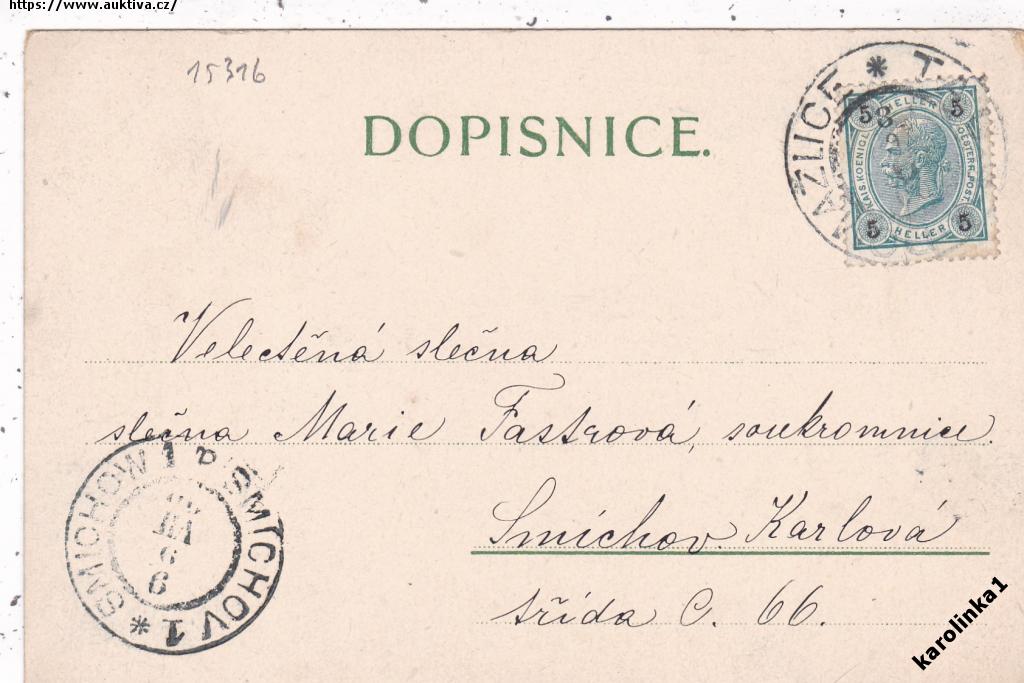 https://www.auktiva.cz/
15316
DOPISNICE.
AŽLICE * T
5 5
HELLER
KAIS. KOENIGL. OESTERR. POST.
5 5
HELLER
Velectěná slečna
slečna Marie Fastrová, soukromnice.
Smíchov. Karlová
třída C. 66.
SMICHOW 1 a SMÍCHOV 1 *
karolinka1